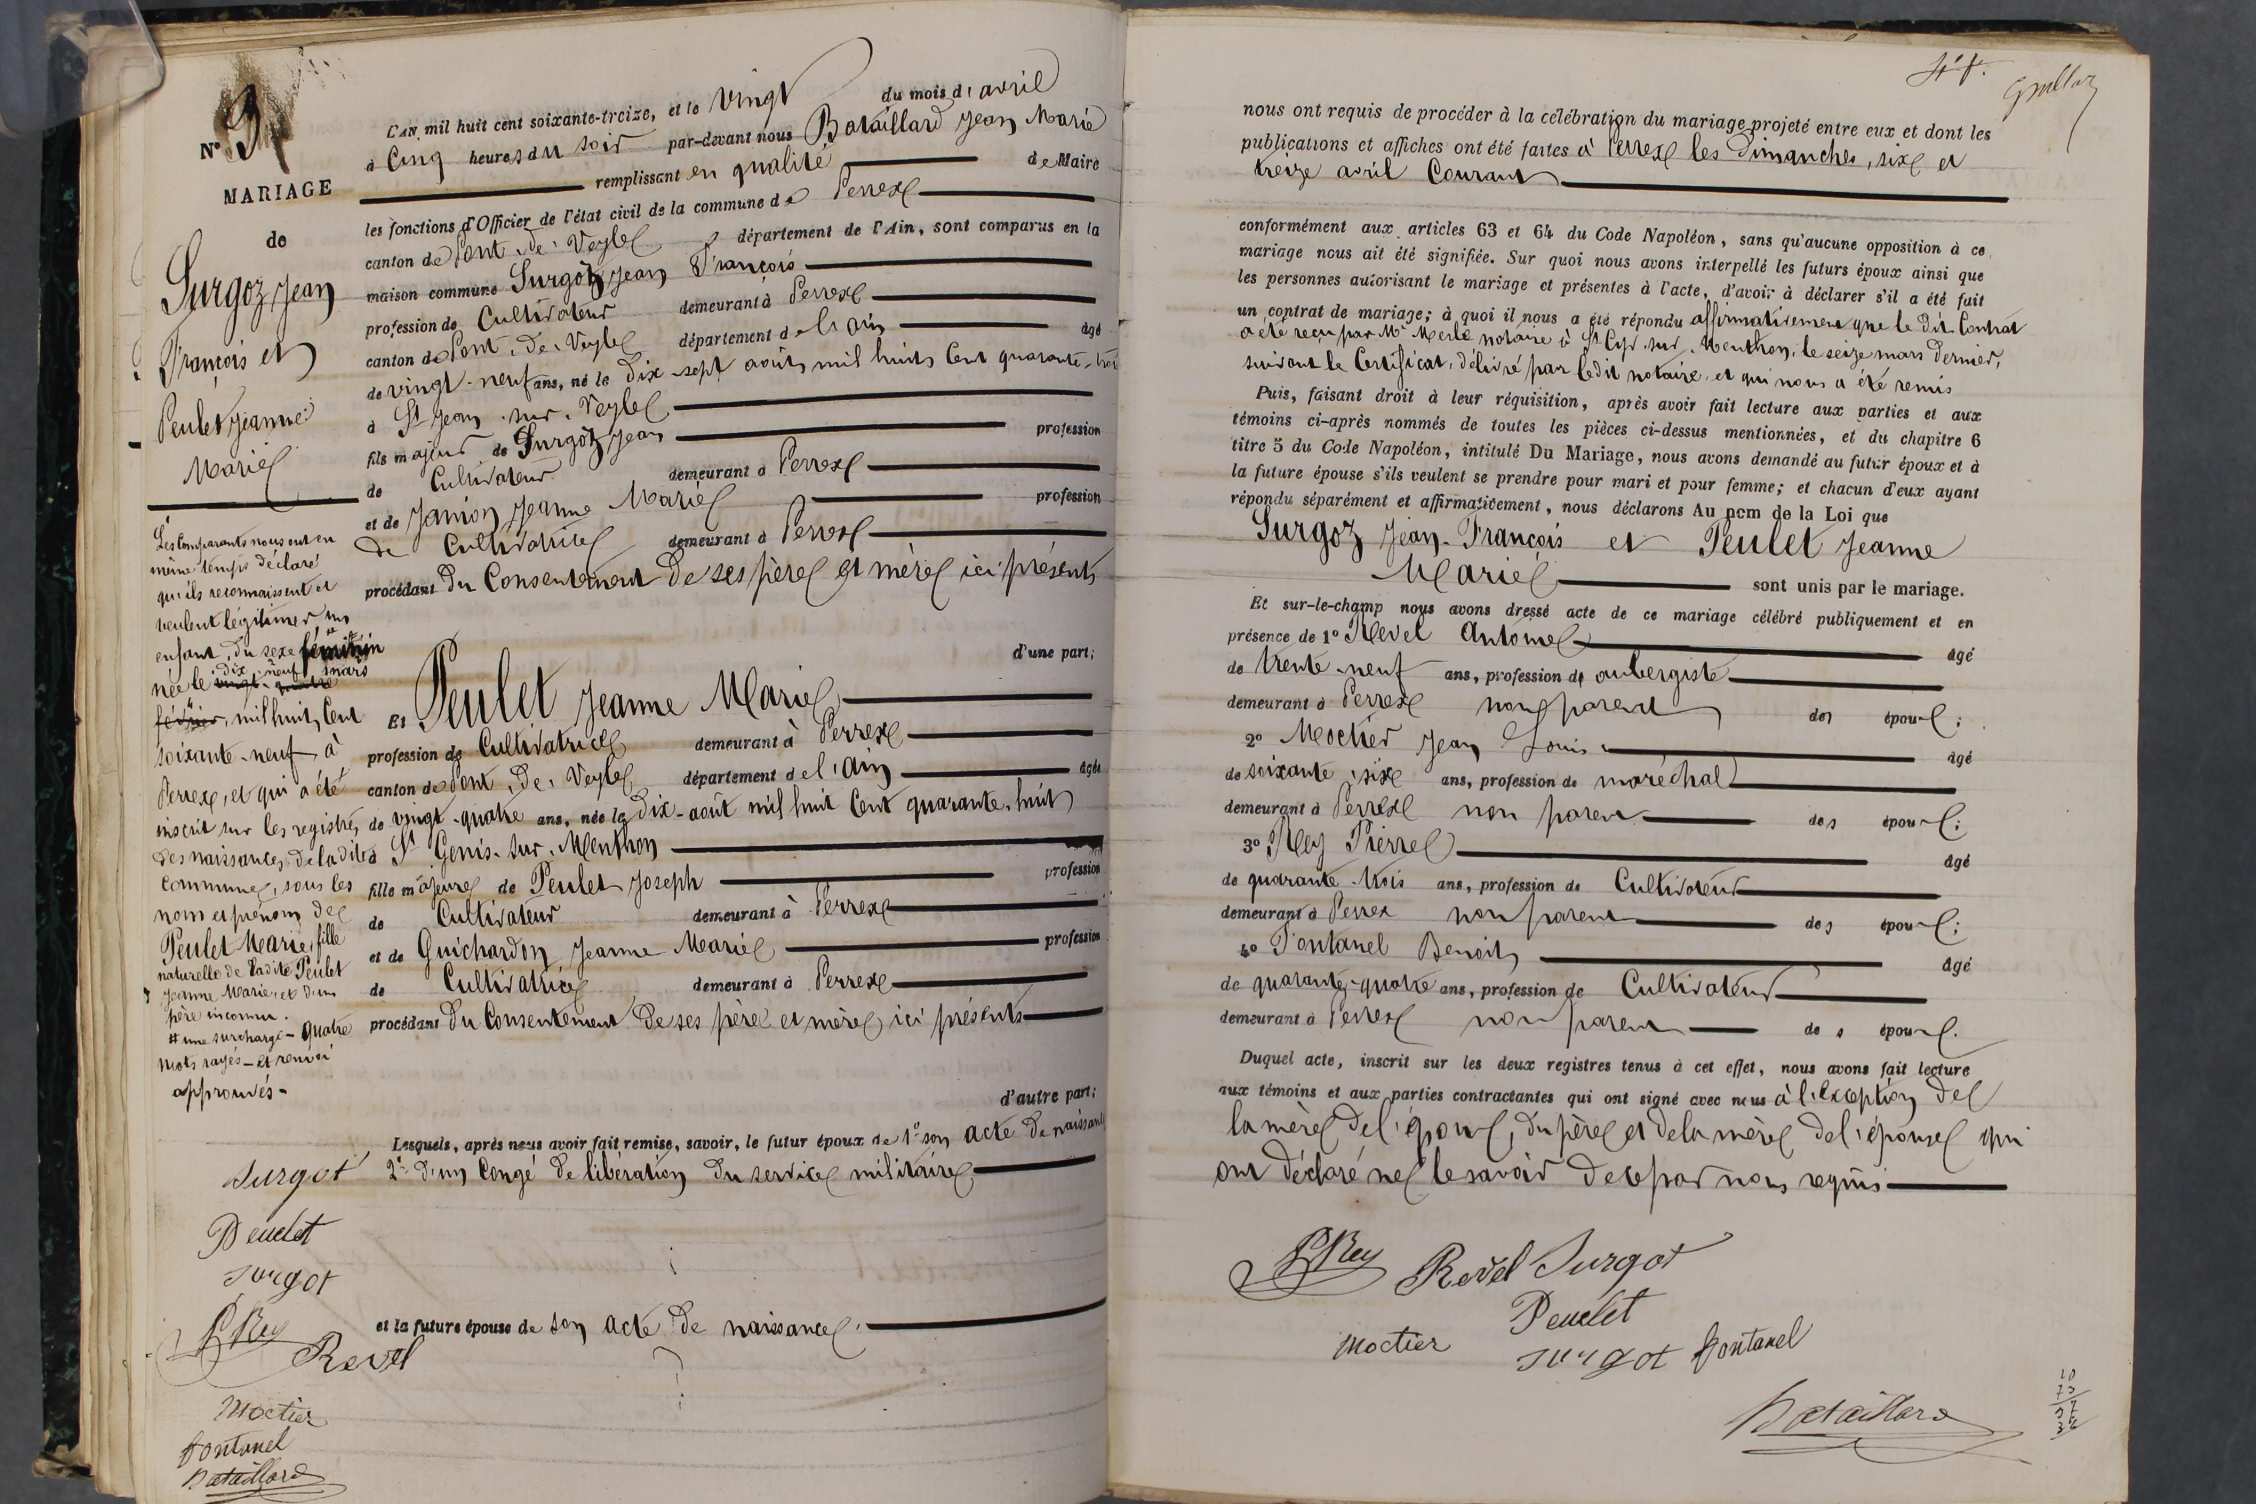 N° 9
MARIAGE
de
Surgoz Jean
François et
Peulet Jeanne
Marie
Les Comparants nous ont en
même temps déclaré
qu'ils reconnaissent et
veulent légitimer un
enfant, du sexe féminin
née le dix neuf mars
vingt-quatre
février, mil huit Cent
soixante-neuf à
Perrex, et qui a été
inscrit sur les registres
des naissances de ladite
Commune, sous les
nom et prénom de
Peulet Marie, fille
naturelle de ladite Peulet
Jeanne Marie et d'un
père inconnu.
# une surcharge - quatre
mots rayés - et renvoi
approuvés -
Surgot
Peuelet
Surgot
P Rey
Revel
Moctier
fontanel
Bataillard
L'AN mil huit cent soixante-treize, et le vingt du mois d'avril
à Cinq heures du soir par-devant nous Bataillard Jean Marie
remplissant en qualité de Maire
les fonctions d'Officier de l'état civil de la commune de Perrex
canton de Pont-de-Veyle département de l'Ain, sont comparus en la
maison commune Surgoz Jean François
profession de Cultivateur demeurant à Perrex
canton de Pont-de-Veyle département de l'ain âgé
de vingt-neuf ans, né le Dix-sept août mil huit Cent quarante-trois
à St Jean-sur-Veyle
fils majeur de Surgoz Jean profession
de Cultivateur demeurant à Perrex
et de Janion Jeanne Marie profession
de Cultivatrice demeurant à Perrex
procédant Du Consentement De ses père et mère ici présents
d'une part;
Et Peulet Jeanne Marie
profession de Cultivatrice demeurant à Perrex
canton de Pont-de-Veyle département de l'ain âgée
de vingt-quatre ans, née le Dix-août mil huit Cent quarante-huit
à St Genis-sur-Menthon
fille majeure de Peulet Joseph profession
de Cultivateur demeurant à Perrex
et de Guichardon Jeanne Marie profession
de Cultivatrice demeurant à Perrex
procédant Du Consentement De ses père et mère ici présents
d'autre part;
Lesquels, après nous avoir fait remise, savoir, le futur époux de 1° son acte De naissance
2° D'un Congé De libération Du service militaire
et la future épouse de son acte De naissance.
nous ont requis de procéder à la célébration du mariage projeté entre eux et dont les
publications et affiches ont été faites à Perrex les Dimanches, six et
treize avril Courant
conformément aux articles 63 et 64 du Code Napoléon, sans qu'aucune opposition à ce
mariage nous ait été signifiée. Sur quoi nous avons interpellé les futurs époux ainsi que
les personnes autorisant le mariage et présentes à l'acte, d'avoir à déclarer s'il a été fait
un contrat de mariage; à quoi il nous a été répondu affirmativement que le Dit Contrat
a été reçu par Me Merle notaire à St Cyr-sur-Menthon, le seize mars Dernier,
suivant le Certificat, délivré par ledit notaire et qui nous a été remis
Puis, faisant droit à leur réquisition, après avoir fait lecture aux parties et aux
témoins ci-après nommés de toutes les pièces ci-dessus mentionnées, et du chapitre 6
titre 5 du Code Napoléon, intitulé Du Mariage, nous avons demandé au futur époux et à
la future épouse s'ils veulent se prendre pour mari et pour femme; et chacun d'eux ayant
répondu séparément et affirmativement, nous déclarons Au nom de la Loi que
Surgoz Jean-François et Peulet Jeanne
Marie sont unis par le mariage.
Et sur-le-champ nous avons dressé acte de ce mariage célébré publiquement et en
présence de 1° Revel Antoine âgé
de trente-neuf ans, profession de aubergiste
demeurant à Perrex non parent des époux;
2° Moctier Jean Louis âgé
de soixante six ans, profession de maréchal
demeurant à Perrex non parent des époux;
3° Rey Pierre âgé
de quarante-trois ans, profession de Cultivateur
demeurant à Perrex non parent des époux;
4° Fontanel Benoit âgé
de quarante-quatre ans, profession de Cultivateur
demeurant à Perrex non parent des époux.
Duquel acte, inscrit sur les deux registres tenus à cet effet, nous avons fait lecture
aux témoins et aux parties contractantes qui ont signé avec nous à l'exception De
la mère De l'époux, Du père et De la mère De l'épouse qui
ont Déclaré ne le savoir De ce par nous requis
P Rey Revel Surgot
Peuelet
Moctier Surgot fontanel
Bataillard